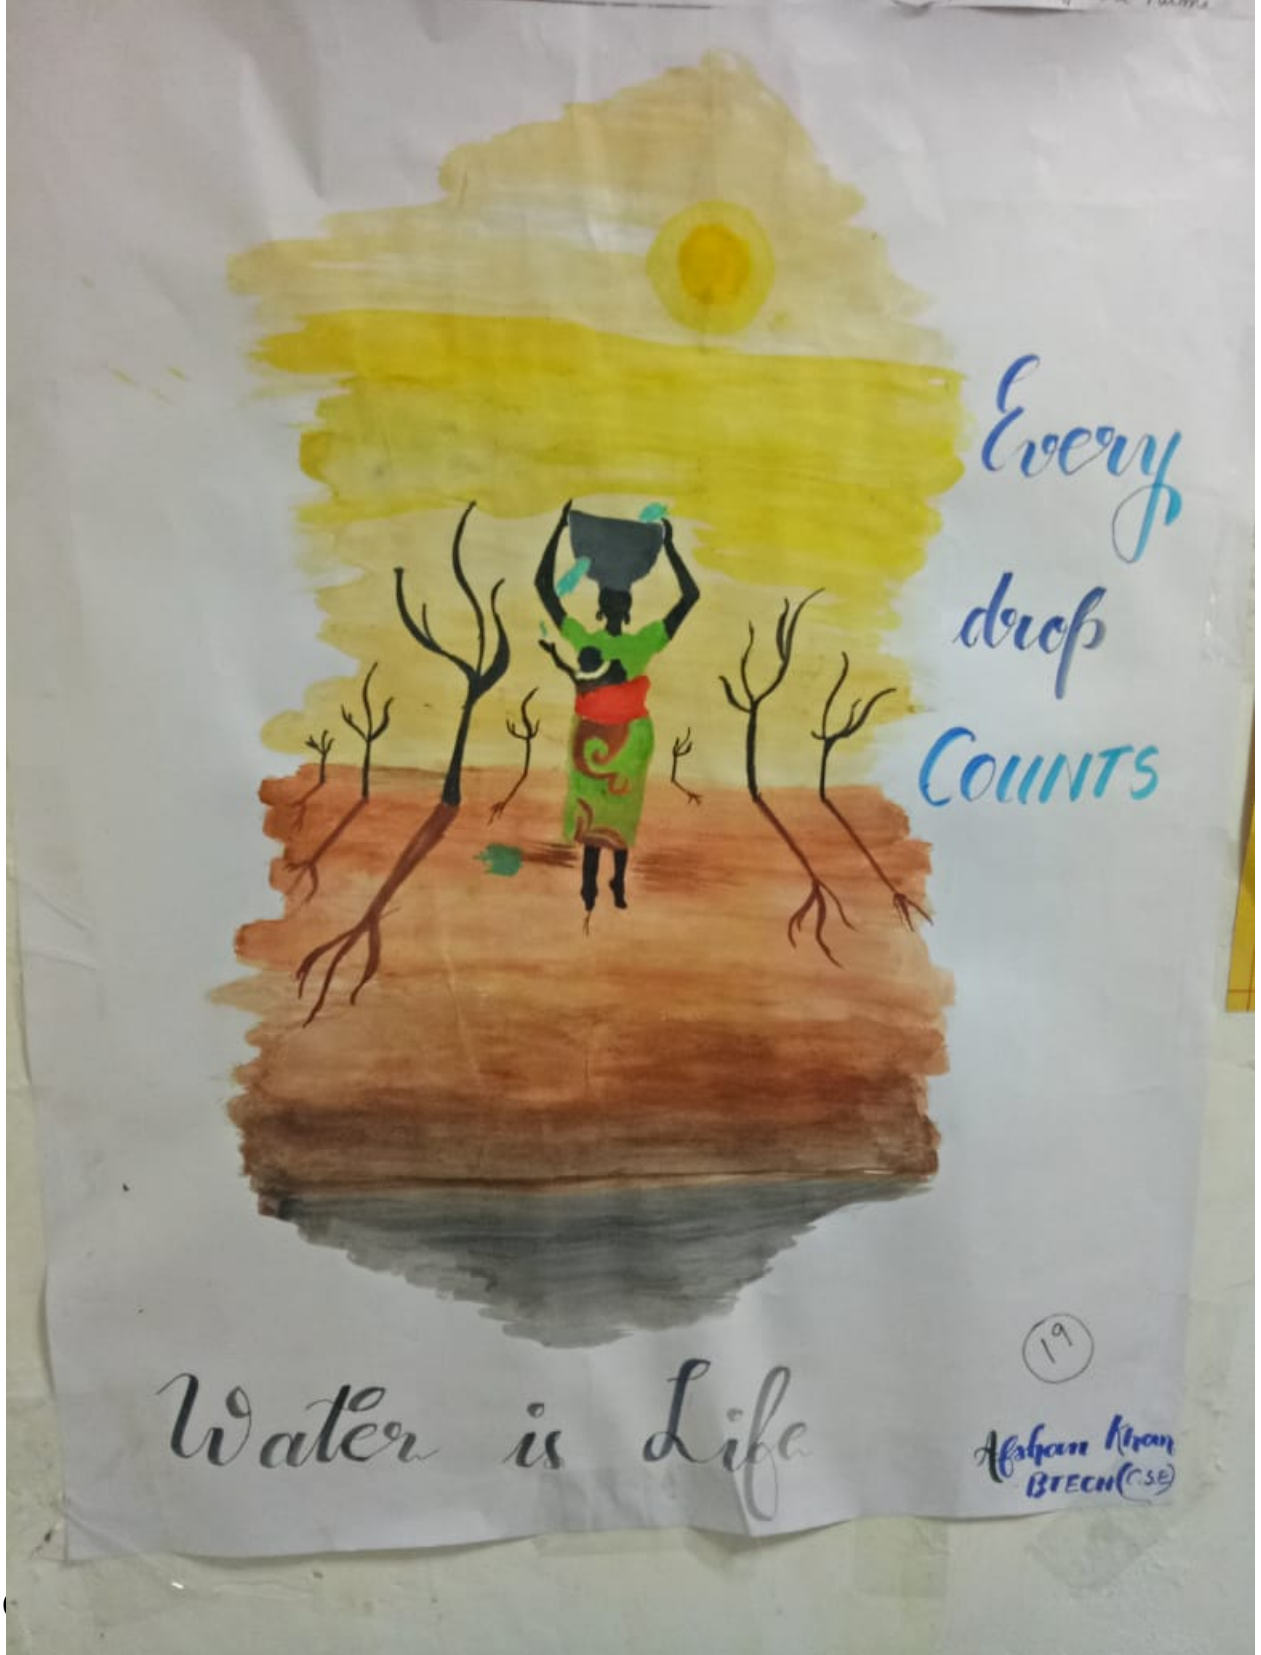 Every
drop
COUNTS
19
Water is Life
Afshan Khan
BTECH (C.S.E)